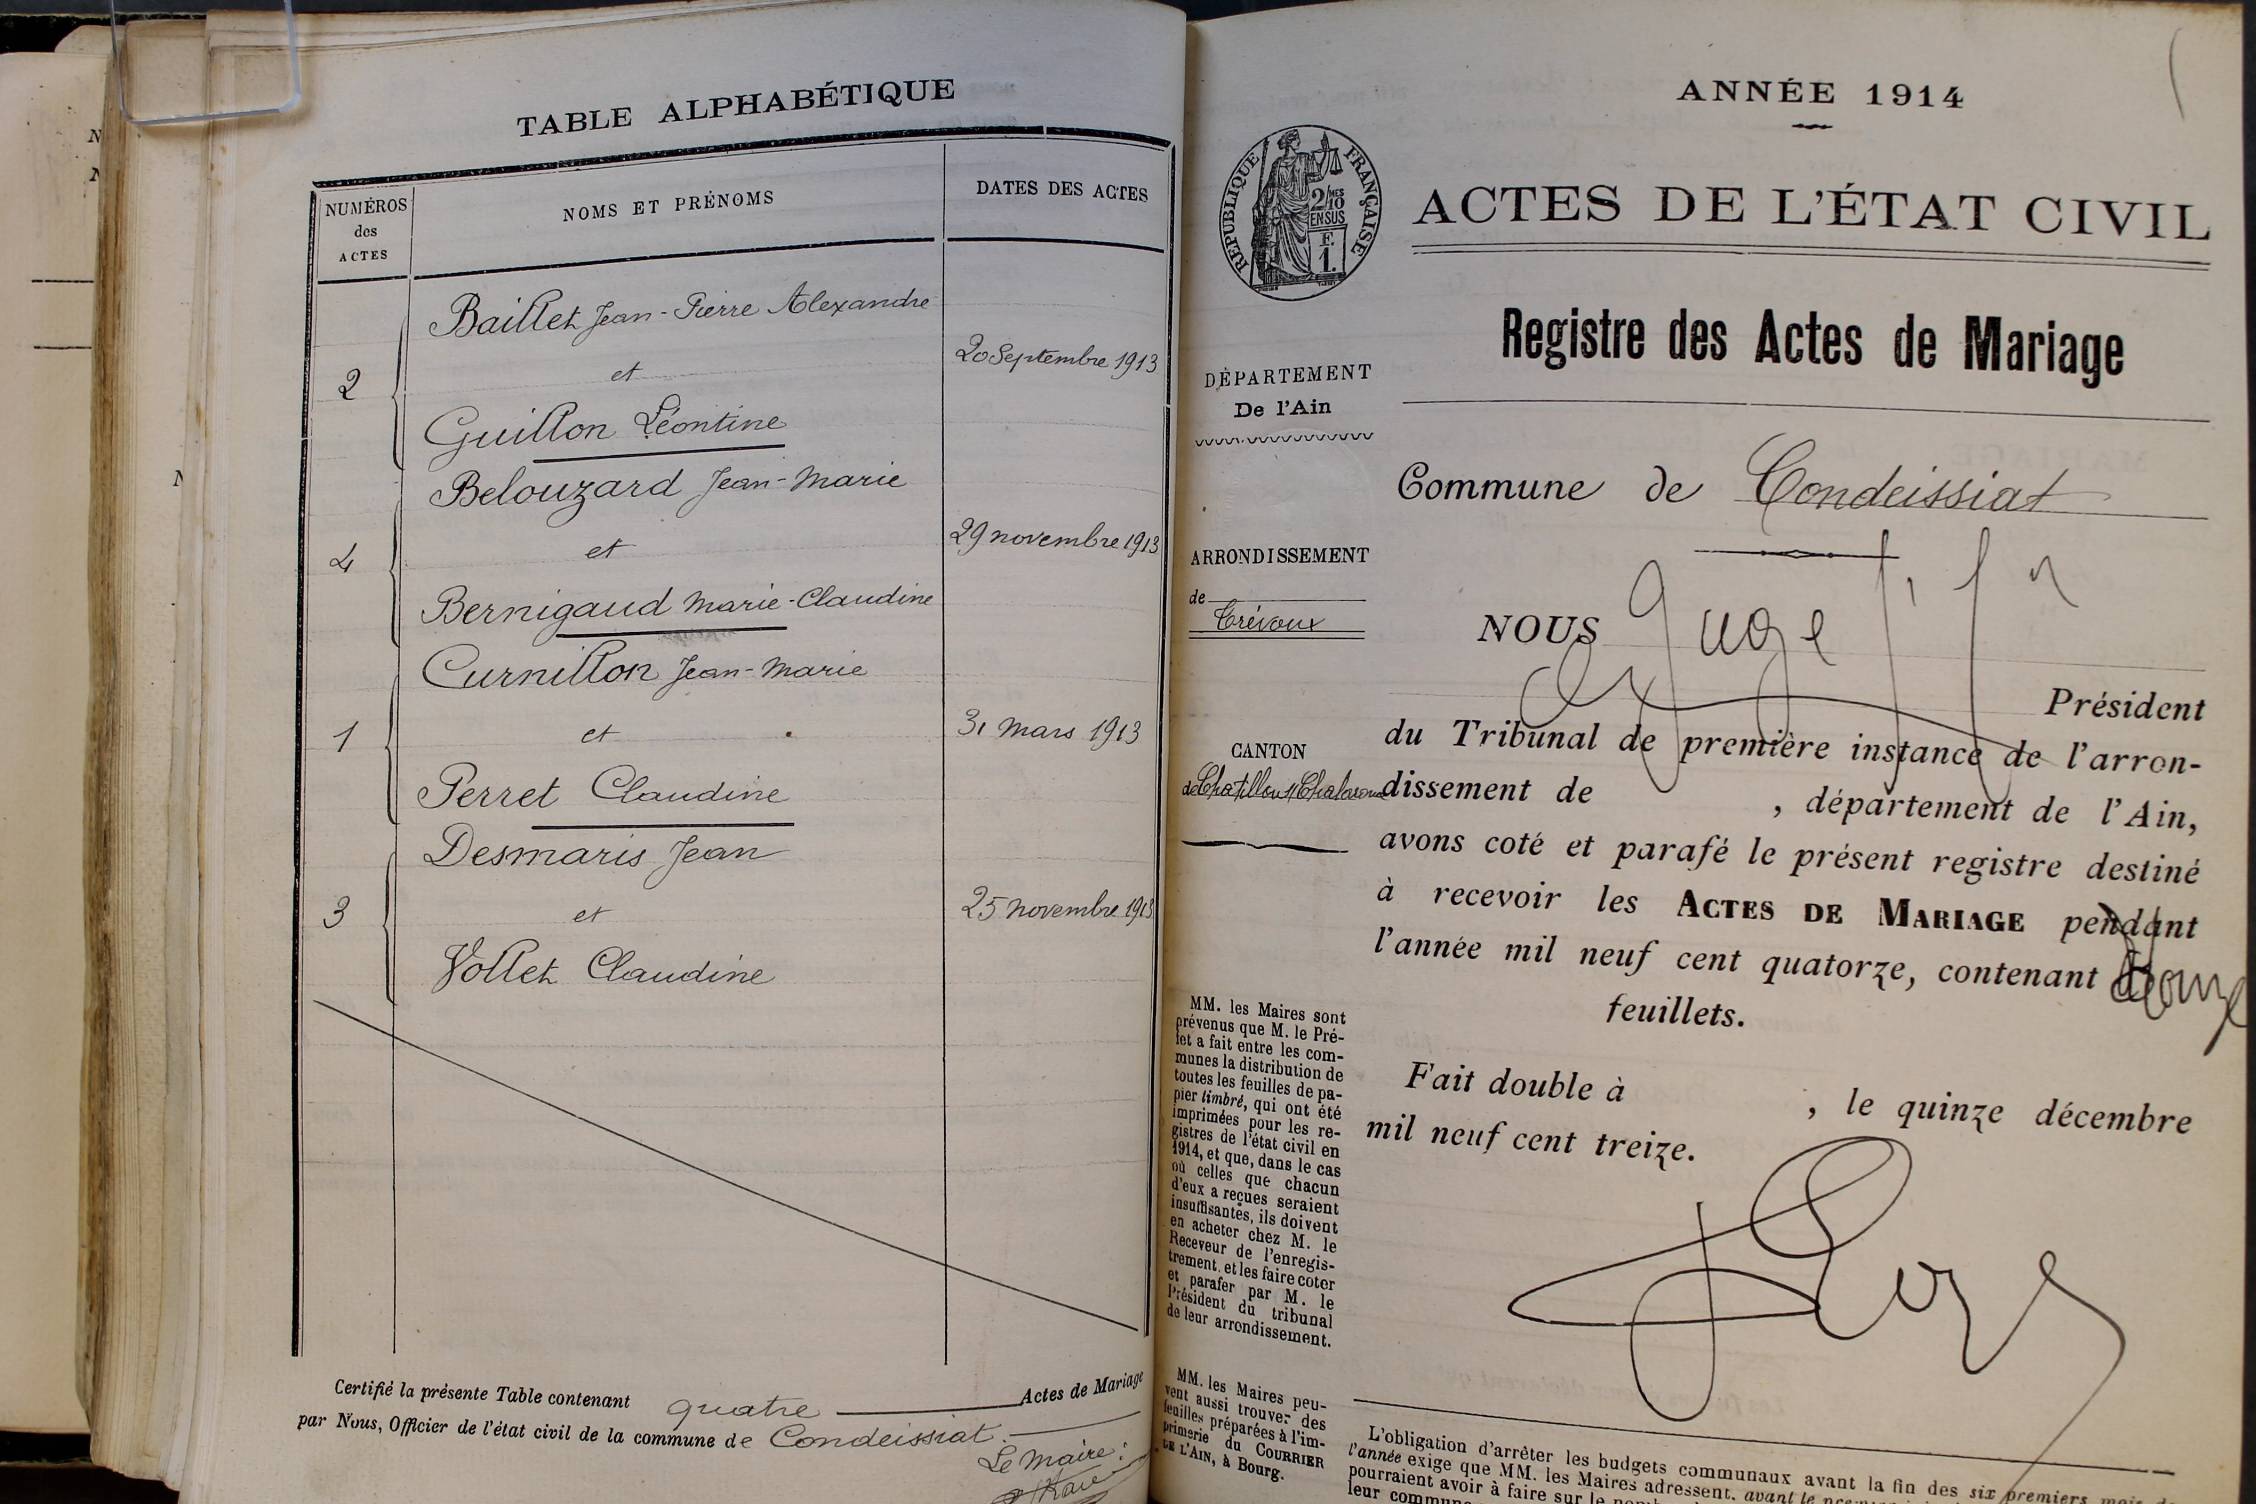 TABLE ALPHABÉTIQUE
NUMÉROS
des
ACTES
NOMS ET PRÉNOMS
DATES DES ACTES
Baillet Jean-Pierre Alexandre
2
et
20 Septembre 1913
Guillon Léontine
Belouzard Jean-Marie
4
et
29 novembre 1913
Bernigaud Marie-Claudine
Curnillon Jean-Marie
1
et
31 mars 1913
Perret Claudine
Desmaris Jean
3
et
25 novembre 1913
Vollet Claudine
Certifié la présente Table contenant quatre Actes de Mariage
par Nous, Officier de l'état civil de la commune de Condeissiat.
Le Maire:
ANNÉE 1914
RÉPUBLIQUE FRANÇAISE
2/10 MES
EN SUS
F.
1.
ACTES DE L'ÉTAT CIVIL
Registre des Actes de Mariage
DÉPARTEMENT
De l'Ain
Commune de Condeissiat
ARRONDISSEMENT
de
Trévoux
CANTON
de Chatillon s/ Chalaronne
NOUS
Président
du Tribunal de première instance de l'arron-
dissement de , département de l'Ain,
avons coté et parafé le présent registre destiné
à recevoir les ACTES DE MARIAGE pendant
l'année mil neuf cent quatorze, contenant
feuillets.
Fait double à , le quinze décembre
mil neuf cent treize.
MM. les Maires sont
prévenus que M. le Pré-
fet a fait entre les com-
munes la distribution de
toutes les feuilles de pa-
pier timbré, qui ont été
imprimées pour les re-
gistres de l'état civil en
1914, et que, dans le cas
où celles que chacun
d'eux a reçues seraient
insuffisantes, ils doivent
en acheter chez M. le
Receveur de l'enregis-
trement, et les faire coter
et parafer par M. le
Président du tribunal
de leur arrondissement.
MM. les Maires peu-
vent aussi trouver des
feuilles préparées à l'im-
primerie du COURRIER
DE L'AIN, à Bourg.
L'obligation d'arrêter les budgets communaux avant la fin des six premiers mois de
l'année exige que MM. les Maires adressent, avant le
pourraient avoir à faire sur le
leur